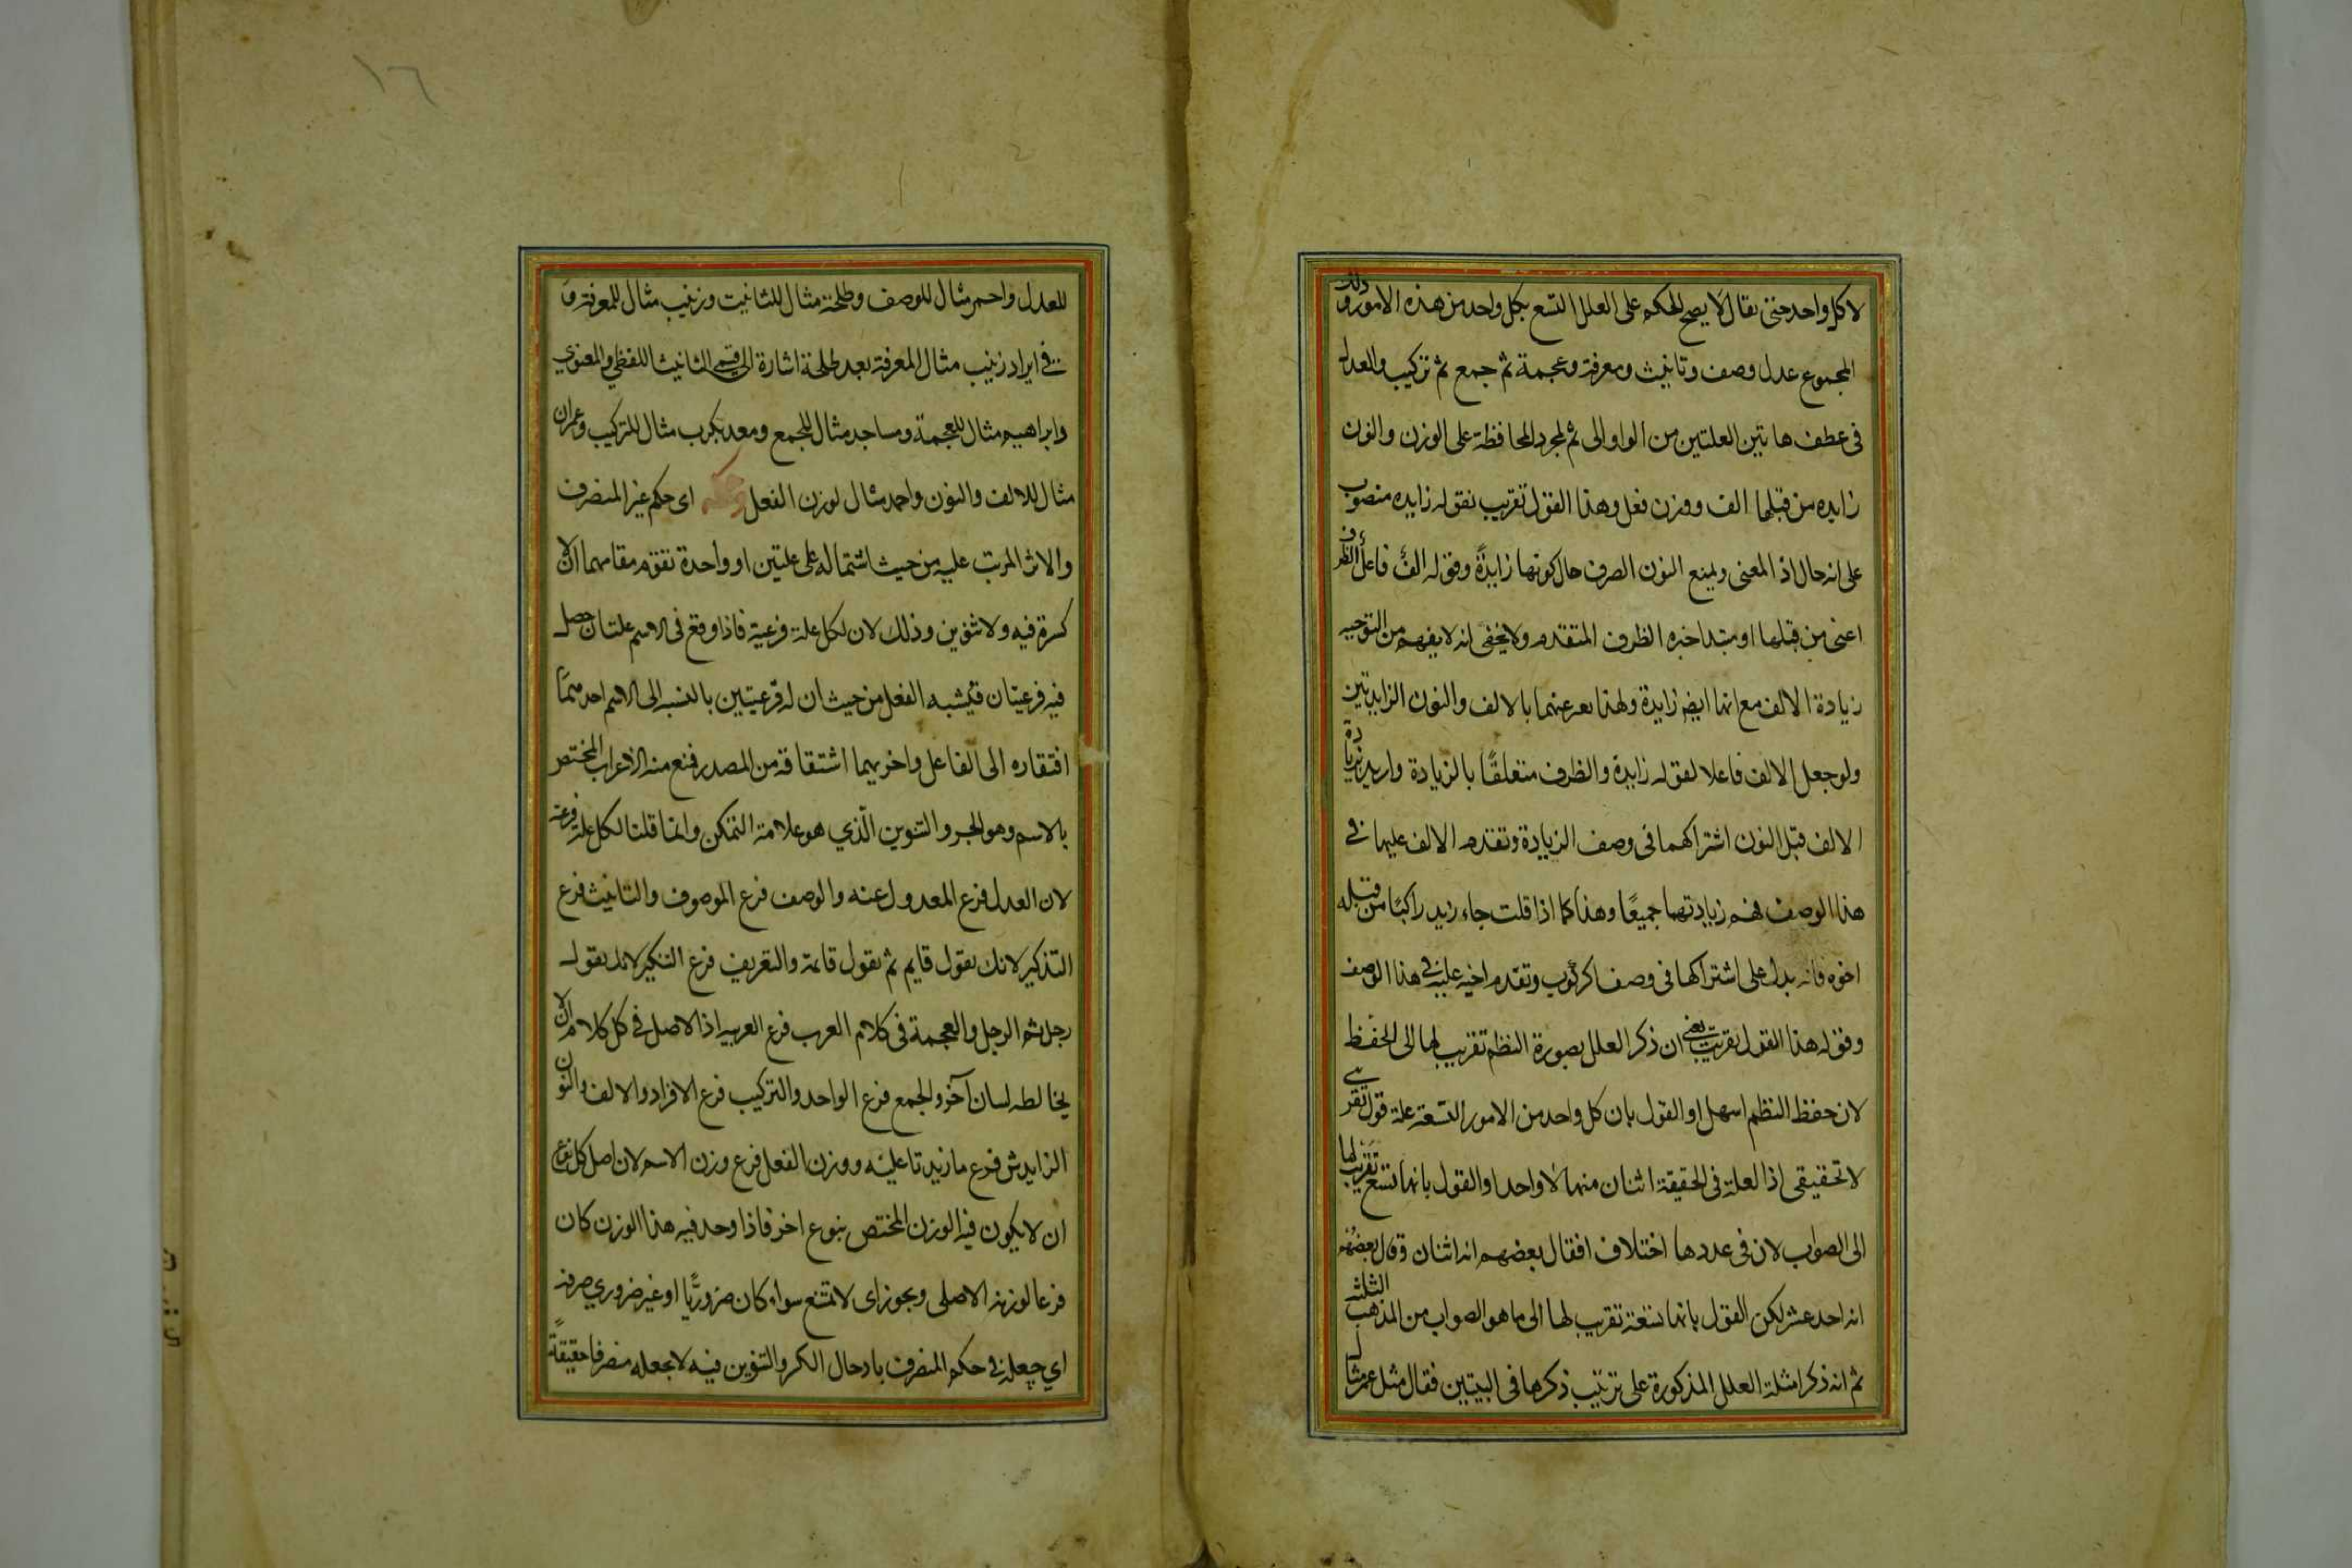 لا كل واحد حتى يقال لا يصح الحكم على العلل التسع بكل واحد من هذه الامور وذلك
المجموع عدل وصف وتانيث ومعرفة وعجمة ثم جمع ثم تركيب والعدل
فى عطف هاتين العلتين من الواو الى ثم لمجرد المحافظة على الوزن والنون
زايده من قبلها الف ووزن فعل وهذا القول تقريب نقوله زايده منصوب
على انه حال اذ المعنى ويمنع النون الصرف حال كونها زايدةً وقوله الفٌ فاعل الظرف
اعنى من قبلها او مبتدا خبره الظرف المتقدم ولا يخفى انه لا يفهم من التوجيه
زيادة الالف مع انها ايضا زايدة ولهذا يعبر عنهما بالالف والنون الزايدتين
ولو جعل الالف فاعلا لقوله زايدة والظرف متعلقًا بالزيادة واريد بزيادة
الالف قبل النون اشتراكهما فى وصف الزيادة وتقدم الالف عليها فى
هذا الوصف فهم زيادتهما جميعًا وهذا كما اذا قلت جاء زيد راكبًا من قبله
اخوه فانه يدل على اشتراكهما فى وصف الركوب وتقدم اخيه عليه فى هذا الوصف
وقوله هذا القول تقريب يعنى ان ذكر العلل بصورة النظم تقريب لها الى الحفظ
لان حفظ النظم اسهل او القول بان كل واحد من الامور التسعة علة قول تقريبى
لا تحقيقى اذ العلة فى الحقيقة اثنان منهما لا واحد او القول بانها تسع تقريب لها
الى الصواب لان فى عددها اختلاف افقال بعضهم انه اثنان وقال بعضهم
انه احد عشر لكن القول بانها تسعة تقريب لها الى ما هو الصواب من المذهب الثلثة
ثم انه ذكر امثلة العلل المذكورة على ترتيب ذكرها فى البيتين فقال مثل عمر مثال
١٦
للعدل واحمر مثال للوصف وطلحة مثال للتانيث وزينب مثال للمعرفة و
فى ايراد زينب مثال المعرفة بعد طلحة اشارة الى قسمى التانيث اللفظى والمعنوي
وابراهيم مثال للعجمة ومساجد مثال للجمع ومعديكرب مثال للتركيب وعمران
مثال للالف والنون واحمد مثال لوزن الفعل وحكمه اى حكم غير المنصرف
والاثر المرتب عليه من حيث اشتماله على علتين او واحدة تقوم مقامهما ان لا
كسرة فيه ولا تنوين وذلك لان لكل علة فرعية فاذا وقع فى الاسم علتان حصل
فيه فرعيتان فيشبه الفعل من حيث ان له فرعيتين بالنسبه الى الاسم احدهمًا
افتقاره الى الفاعل واخريهما اشتقاقه من المصدر فمنع منه الاعراب المختص
بالاسم وهو الجر والتنوين الّذي هو علامة التمكن وانما قلنا لكل علة فرعية
لان العدل فرع المعدول عنه والوصف فرع الموصوف والتانيث فرع
التذكير لانك تقول قايم ثم تقول قائمة والتعريف فرع التنكير لانك تقول
رجل ثم الرجل والعجمة فى كلام العرب فرع العربيه اذ الاصل فى كل كلام ان لا
يخالطه لسان آخر والجمع فرع الواحد والتركيب فرع الافراد والالف والنون
الزايدتين فرع ما زيدتا عليه ووزن الفعل فرع وزن الاسم لان اصل كل نوع
ان لا يكون فيه الوزن المختص بنوع اخر فاذا وجد فيه هذا الوزن كان
فرعا لوزنه الاصلى ويجوز اى لا يمتنع سواء كان ضروريًّا او غير ضروري صرفه
اي جعله فى حكم المنصرف بادخال الكسر والتنوين فيه لا بجعله منصرفا حقيقةً